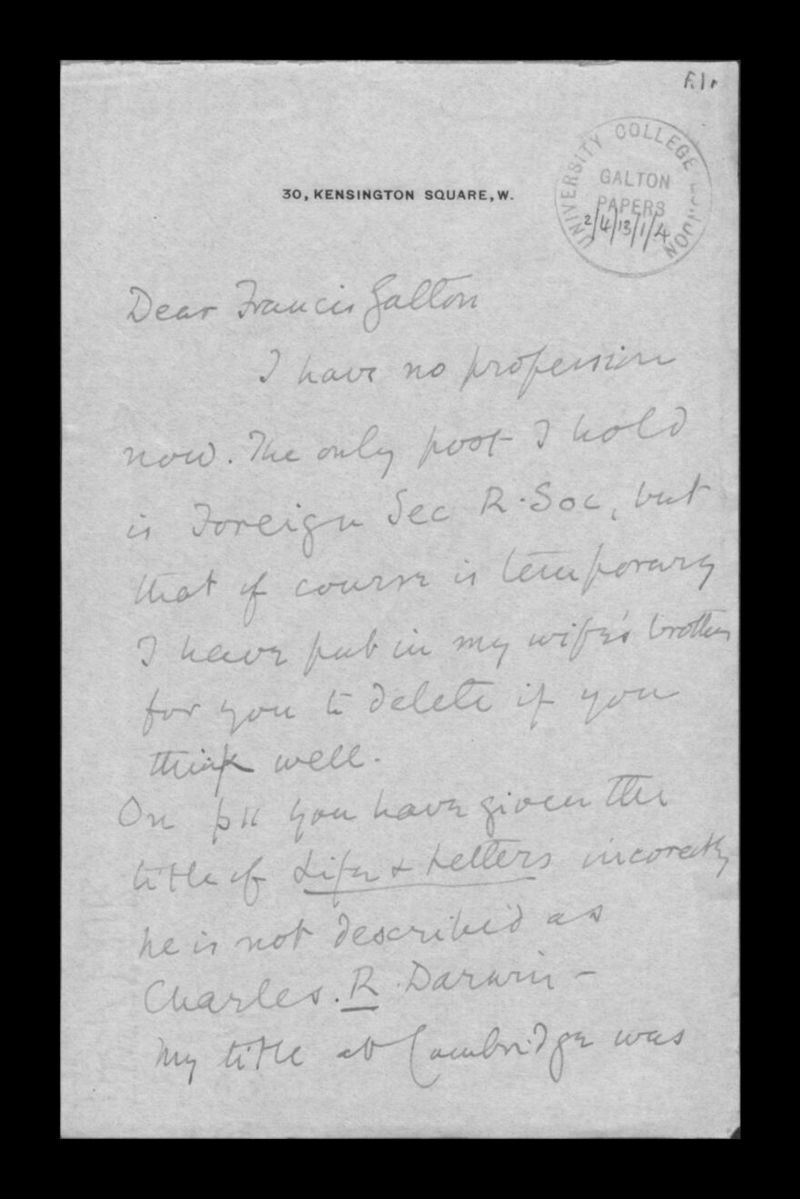 F.1r
30, KENSINGTON SQUARE, W.
UNIVERSITY COLLEGE LONDON
GALTON
PAPERS
2/4/13/1/4
Dear Francis Galton
I have no profession
now. The only post I hold
is Foreign Sec R. Soc, but
that of course is temporary
I have put in my wife's brothers
for you to delete if you
think well.
On p 11 you have given the
title of Life & Letters incorectly
he is not described as
Charles. R. Darwin –
My title at Cambridge was